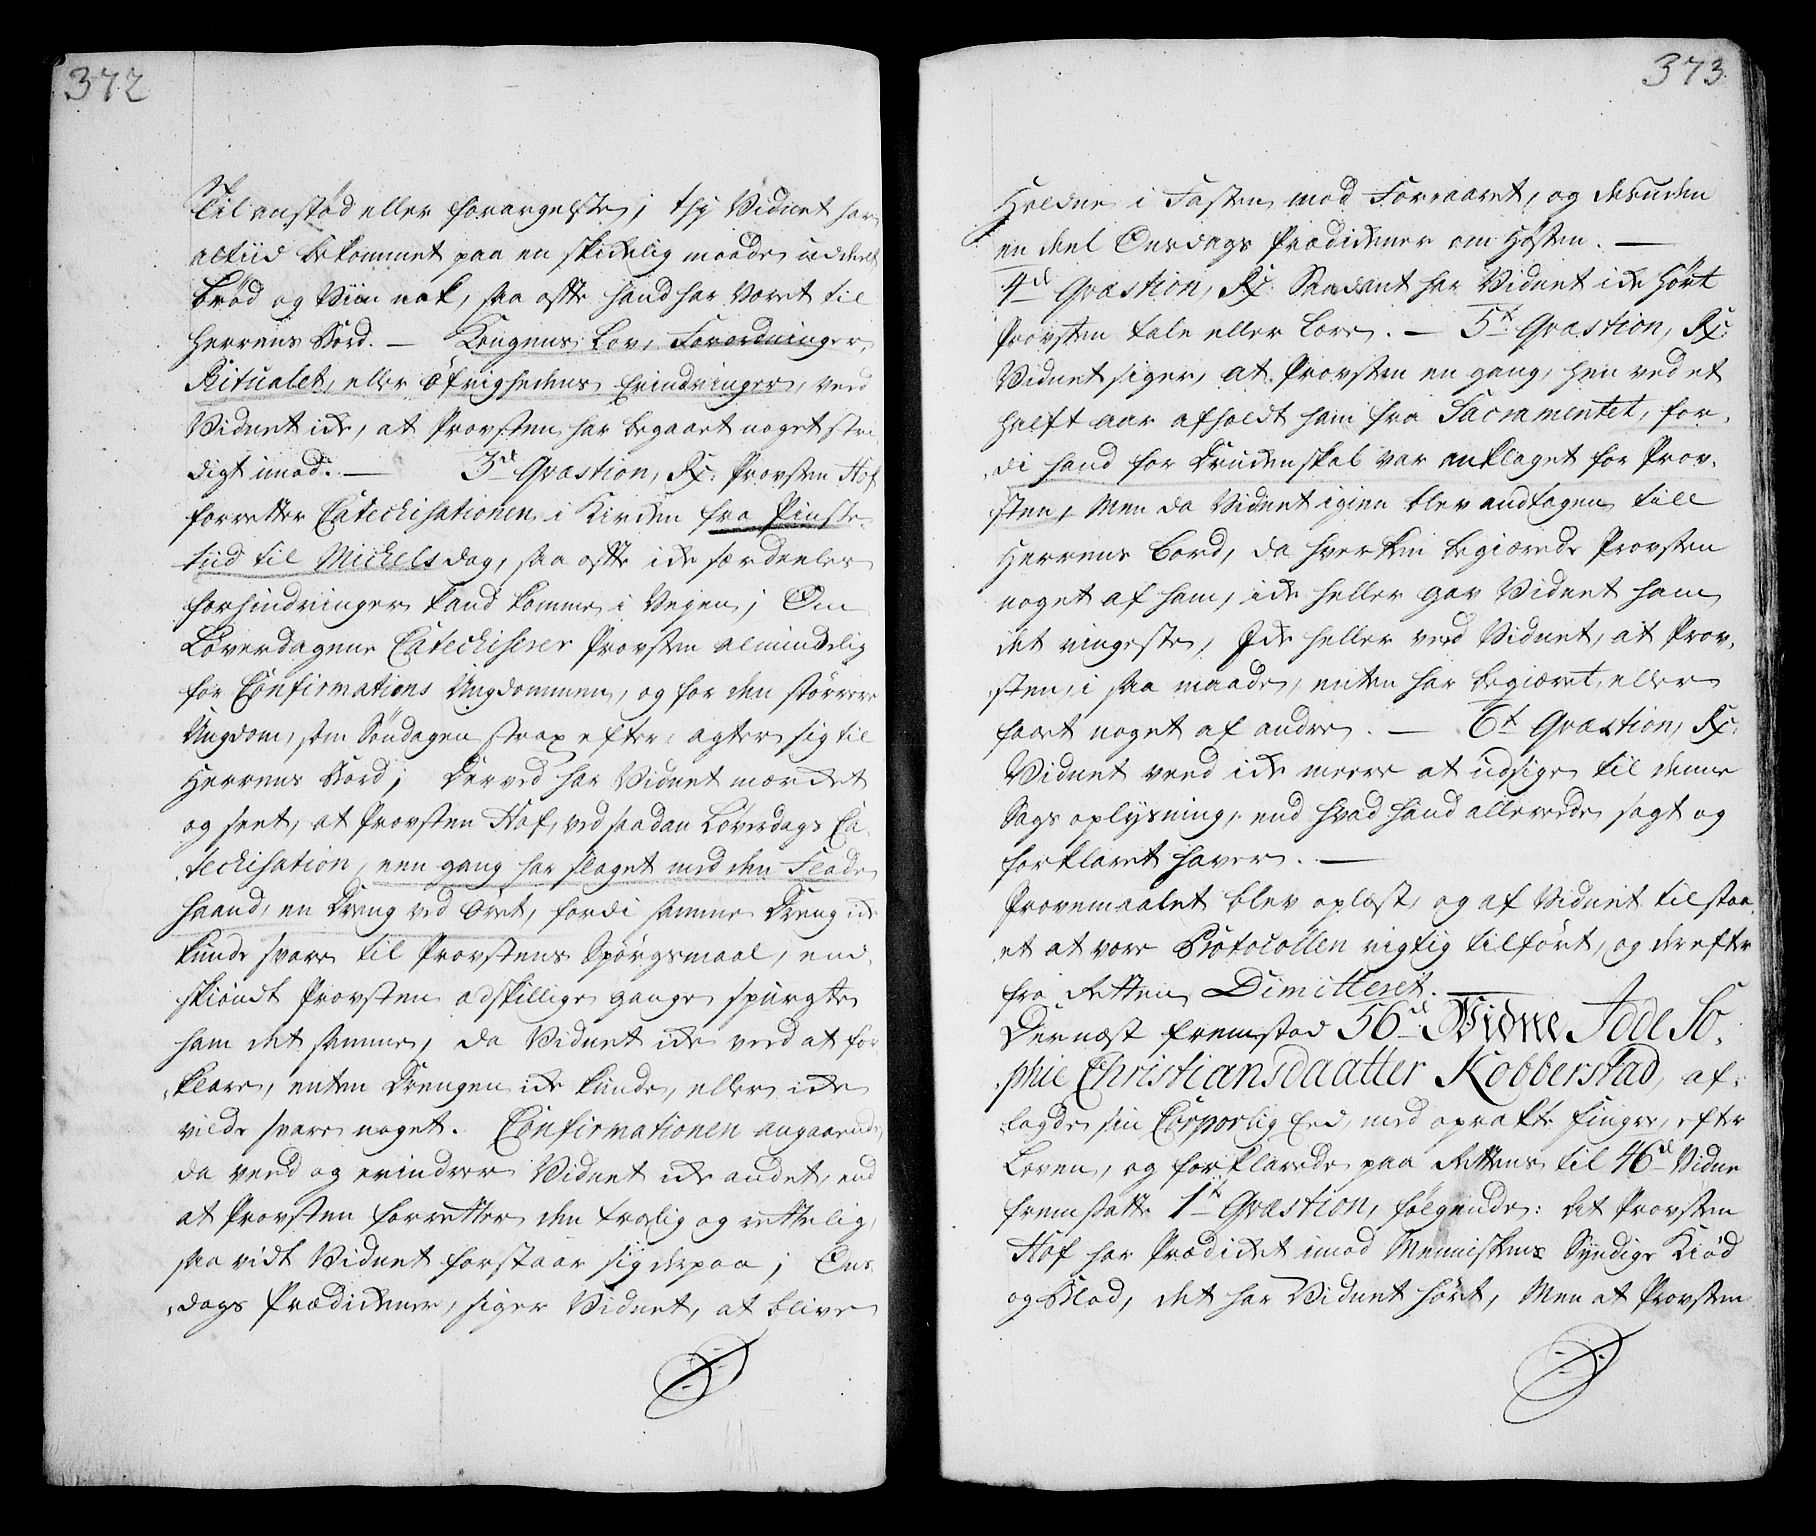 372
Til anstød eller forargelse; thj Vidnet har
altiid bekommet paa en skikelig maade uddeelt
brød og Viin nok, saa ofte hand har Været til
Herrens Bord. — Kongens Lov, Forordninger,
Ritualet, eller Øfrighedens Erindringer, veed
Vidnet ike, at Provsten har begaaet noget stri
digt imod. — 3d Qvæstion, Rx: Provsten Hof
forretter Catechisationen i Kirken fra Pintse
tiid til Michels dag, saa ofte ike særdeeles
forhindringer kand komme i Vejen; Om
Løverdagene Catechiserer Provsten almindelig
for Confirmations Ungdommen, og for den større
Ungdom, som Søndagen strax efter agter sig til
Herrens Bord; Derved har Vidnet mærket
og seet, at Provsten Hof, ved saadan Løverdags Ca-
techisation, een gang har slaget med den Flade
haand, en Dreng ved Øret, fordi samme Dreng ike
kunde svare til Provstens Spørgsmaal, end-
skiøndt Provsten adskillige gange spurgte
ham det samme, da Vidnet ike veed at for
klare, enten Drengen ike kunde, eller ike
vilde svare noget. Confirmationen angaaende,
da veed og erindrer Vidnet ike andet, end
at Provsten forretter den troelig og rettelig,
saa vidt Vidnet forstaar sig derpaa; Ons-
dags Prædikener, siger Vidnet, at blive
373
Holdne i Fasten mod Foraaret, og desuden
en deel Onsdags Prædikener om Høsten. —
4de Qvæstion, Rx: Saadant har Vidnet ike Hørt
Provsten tale eller lære. — 5t Qvæstion, Rx:
Vidnet siger, at Provsten en gang, hen ved et
halft aar afholdt ham fra Sacramentet, for-
di hand for Drukenskab var anklaget for Prov-
sten, Men da Vidnet igien blev andtagen till
Herrens Bord, da hverken begiærede Provsten
noget af ham, ike heller gav Vidnet ham
det ringeste, Ike heller veed Vidnet, at Prov-
sten, i saa maade, enten har begiæret, eller
faaet noget af andre. — 6t Qvæstion, Rx:
Vidnet veed ike meere at udsige til denne
Sags oplysning, end hvad hand allereede sagt og
forklaret haver. —
Prøvemaalet blev oplæst, og af Vidnet tilstaa-
et at være Protocollen rigtig tilført, og derefter
fra Retten Dimitteret.
Dernæst fremstod 56de Vidne Idde So-
phie Christiansdaatter Kobberstad, af-
lagde sin Corporlig Eed, med oprakte finger, efter
Loven, og forklarede paa Rettens til 46de Vidne
fremsatte 1te Qvæstion, følgende: Det Provsten
Hof har Prædiket imod Menniskens Syndige Kiød
og Blod, det har Vidnet hørt, Men at Provsten